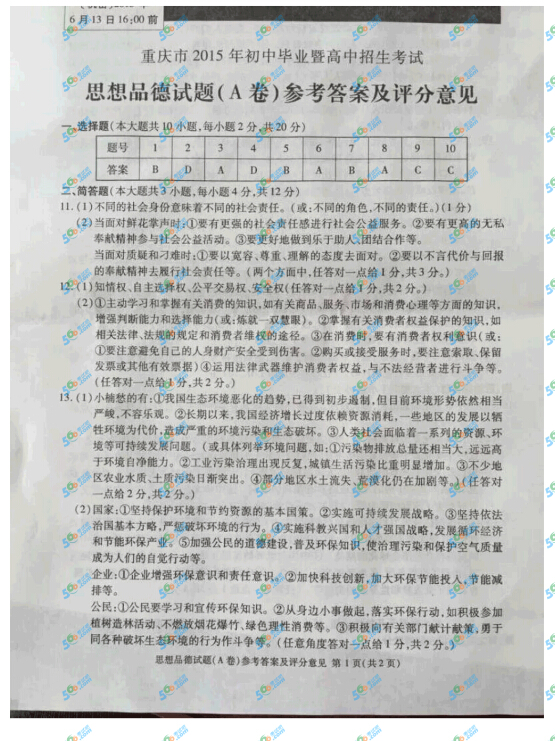 6月13日16:00前
重庆市2015年初中毕业暨高中招生考试
思想品德试题(A卷)参考答案及评分意见
一、选择题(本大题共10小题,每小题2分,共20分)
题号 1 2 3 4 5 6 7 8 9 10
答案 B D A D B A B A C C
二、简答题(本大题共3小题,每小题4分,共12分)
11.(1)不同的社会身份意味着不同的社会责任。(或:不同的角色,不同的责任。)(1分)
(2)当面对鲜花掌声时:①要有更强的社会责任感进行社会公益服务。②要有更高的无私
奉献精神参与社会公益活动。③要更好地做到乐于助人、团结合作等。
当面对质疑和刁难时:①要以宽容、尊重、理解的态度去面对。②要以不言代价与回报
的奉献精神去履行社会责任等。(两个方面中,任答对一点给1分,共3分。)
12.(1)知情权、自主选择权、公平交易权、安全权(任答对一点给1分,共2分。)
(2)①主动学习和掌握有关消费的知识,如有关商品、服务、市场和消费心理等方面的知识,
增强判断能力和选择能力(或:炼就一双慧眼)。②掌握有关消费者权益保护的知识,如
相关法律、法规的规定和消费者维权的途径。③在消费时,要有消费者权利意识(或:
①要注意避免自己的人身财产安全受到伤害。②购买或接受服务时,要注意索取、保留
发票或其他有效票据)④运用法律武器维护消费者权益,与不法经营者进行斗争等。
(任答对一点给1分,共2分。)
13.(1)小楠愁的有:①我国生态环境恶化的趋势,已得到初步遏制,但目前环境形势依然相当
严峻,不容乐观。②长期以来,我国经济增长过度依赖资源消耗,一些地区的发展以牺
牲环境为代价,造成严重的环境污染和生态破坏。③人类社会面临着一系列的资源、环
境等可持续发展问题。(或具体列举环境问题,如:①污染物排放总量还相当大,远远高
于环境自净能力。②工业污染治理出现反复,城镇生活污染比重明显增加。③不少地
区农业水质、土质污染日渐突出。④部分地区水土流失、荒漠化仍在加剧等。)(任答对
一点给2分,共2分。)
(2)国家:①坚持保护环境和节约资源的基本国策。②实施可持续发展战略。③坚持依法
治国基本方略,严惩破坏环境的行为。④实施科教兴国和人才强国战略,发展循环经济
和节能环保产业。⑤加强公民的道德建设,普及环保知识,使治理污染和保护空气质量
成为人们的自觉行动等。
企业:①企业增强环保意识和责任意识。②加快科技创新,加大环保节能投入,节能减
排等。
公民:①公民要学习和宣传环保知识。②从身边小事做起,落实环保行动,如积极参加
植树造林活动、不燃放烟花爆竹、绿色理性消费等。③积极向有关部门献计献策,勇于
同各种破坏生态环境的行为作斗争等。(任意角度答对一点给1分,共2分。)
思想品德试题(A卷)参考答案及评分意见 第1页(共2页)